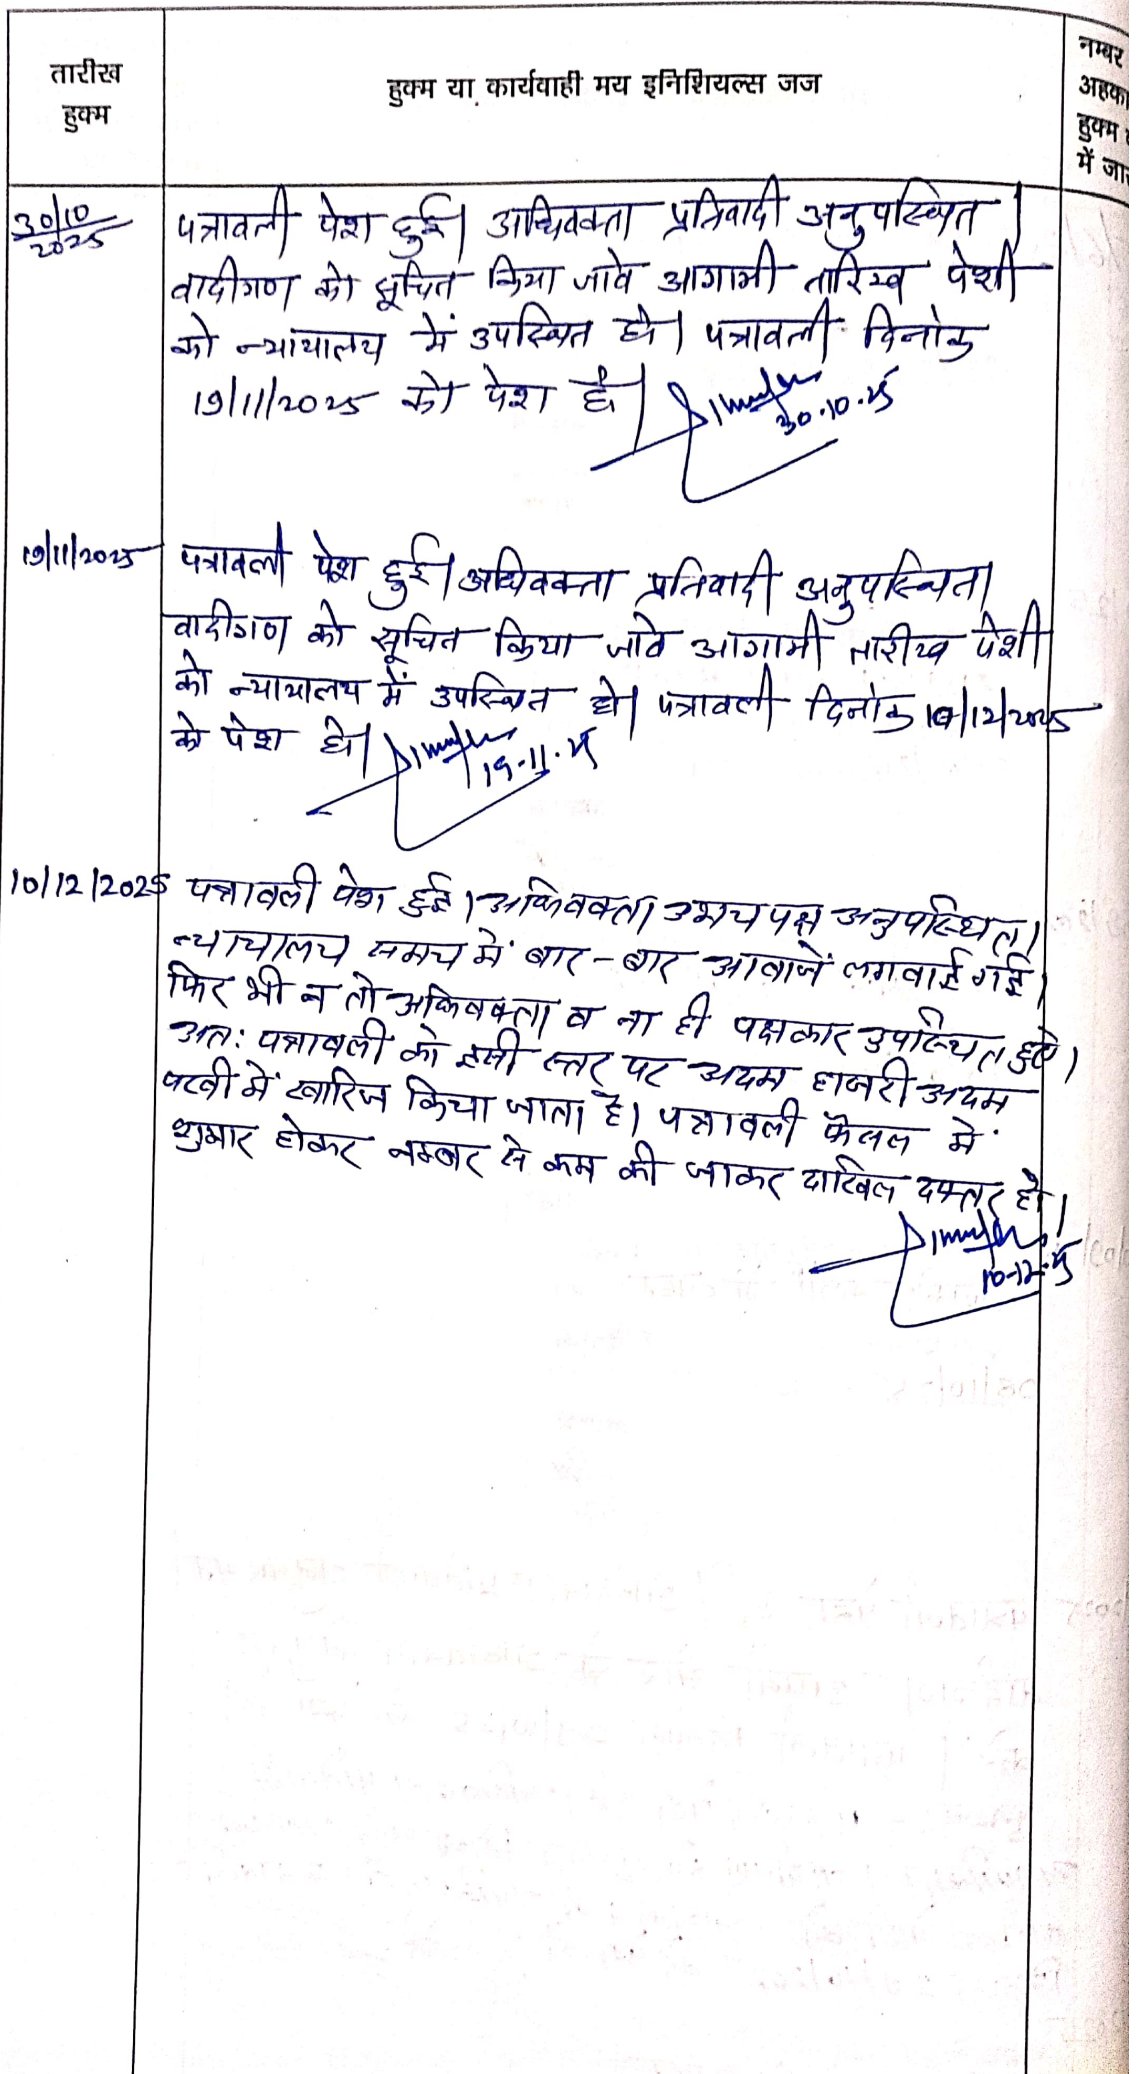 तारीख
हुक्म
हुक्म या कार्यवाही मय इनिशियल्स जज
नम्बर
अहका
हुक्म
में जा
30/10/2025
पत्रावली पेश हुई। अधिवक्ता प्रतिवादी अनुपस्थित।
वादीगण को सूचित किया जावे आगामी तारिख पेशी
को न्यायालय में उपस्थित हो। पत्रावली दिनांक
19/11/2025 को पेश हो।
30.10.25
19/11/2025
पत्रावली पेश हुई। अधिवक्ता प्रतिवादी अनुपस्थित।
वादीगण को सूचित किया जावे आगामी तारीख पेशी
को न्यायालय में उपस्थित हो। पत्रावली दिनांक 10/12/2025
को पेश हो।
19.11.25
10/12/2025
पत्रावली पेश हुई। अधिवक्ता उभय पक्ष अनुपस्थित।
न्यायालय समय में बार-बार आवाजें लगवाई गई।
फिर भी न तो अधिवक्ता व ना ही पक्षकार उपस्थित हुए।
अत: पत्रावली को इसी स्तर पर अदम हाजरी अदम
परवी में खारिज किया जाता है। पत्रावली फैसल में
शुमार होकर नम्बर से कम की जाकर दाखिल दफ्तर हो।
10-12-25